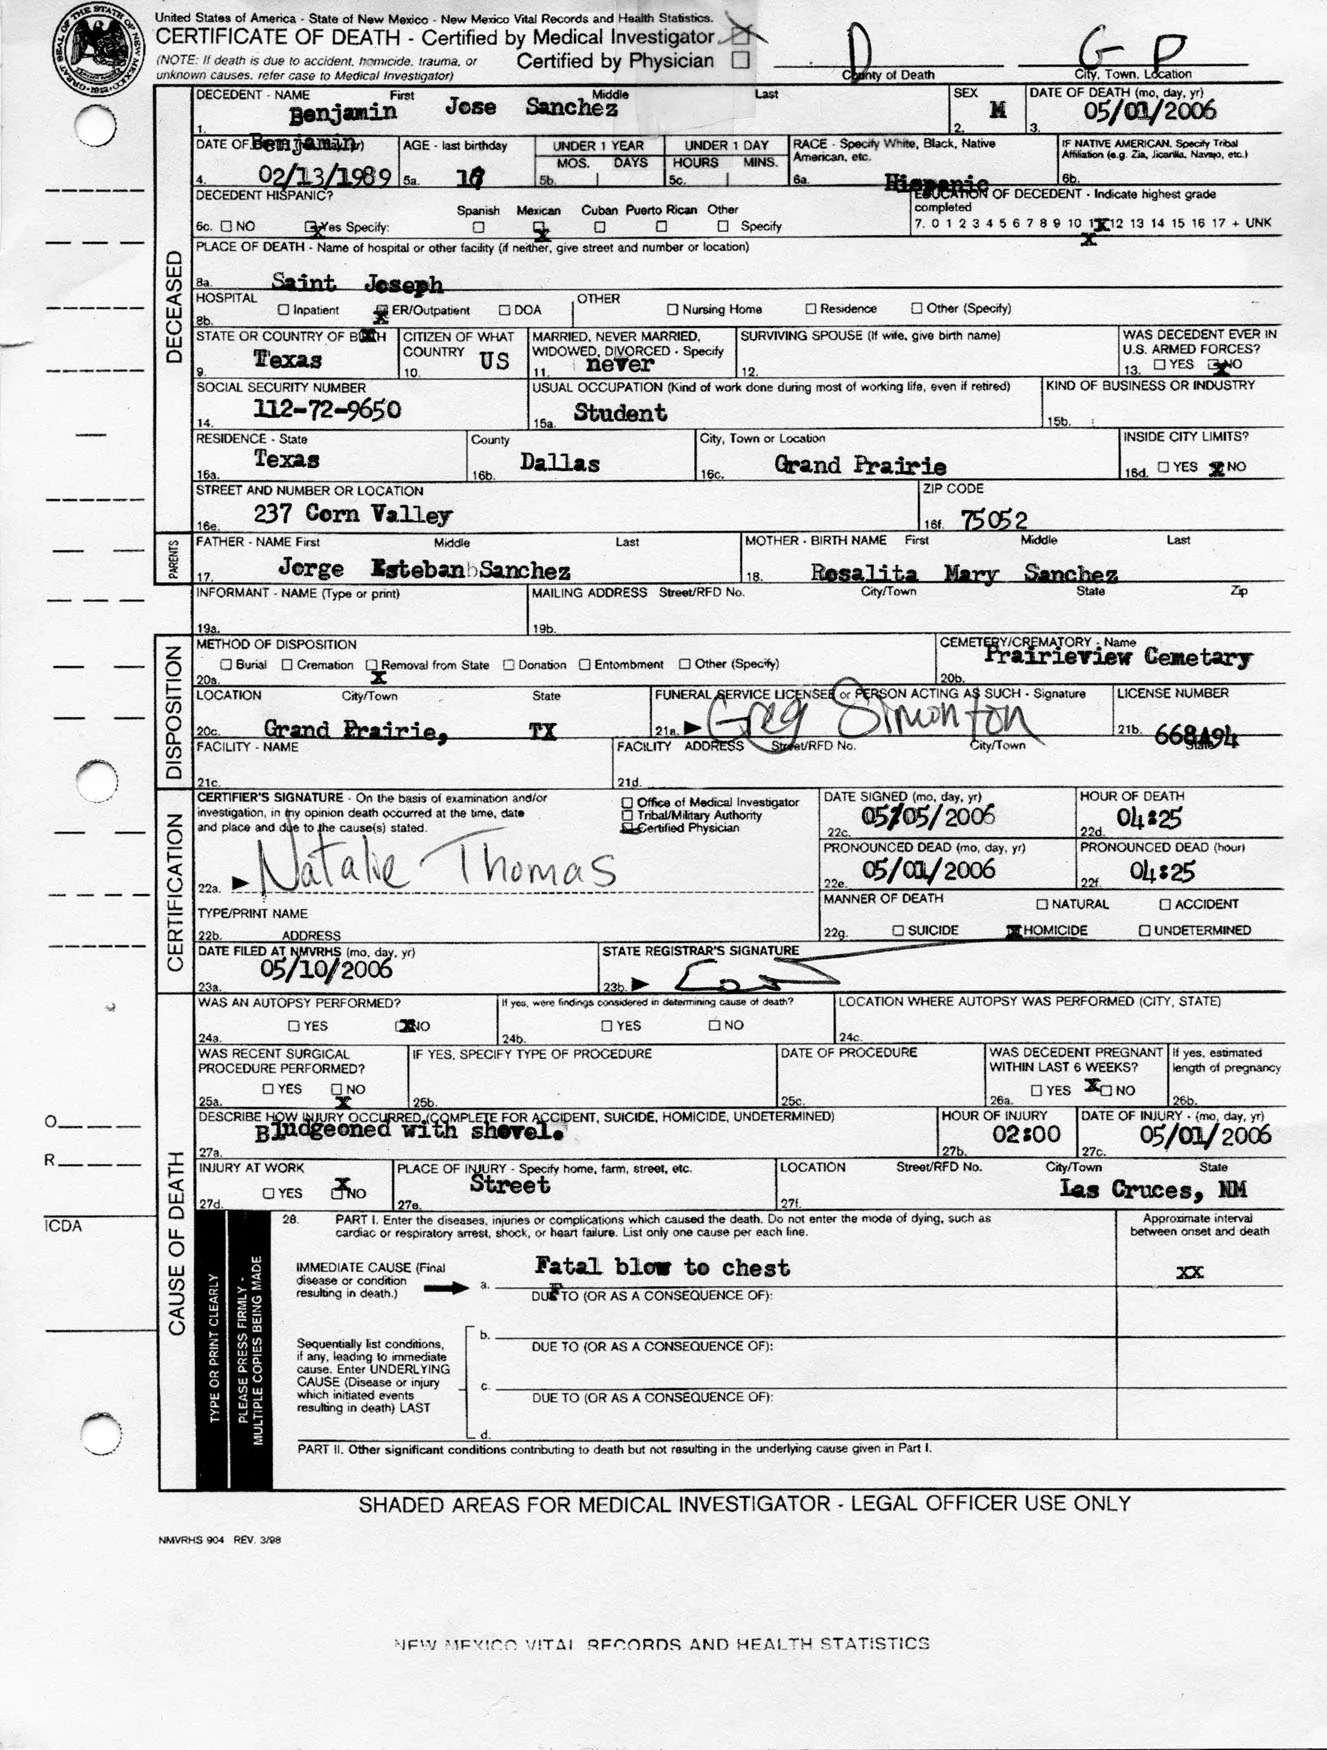 United States of America - State of New Mexico - New Mexico Vital Records and Health Statistics.
CERTIFICATE OF DEATH - Certified by Medical Investigator X
(NOTE: If death is due to accident, homicide, trauma, or unknown causes, refer case to Medical Investigator)
Certified by Physician
D
County of Death
G P
City, Town, Location
DECEASED
DECEDENT - NAME First Middle Last
1. Benjamin Jose Sanchez
SEX
2. M
DATE OF DEATH (mo, day, yr)
3. 05/01/2006
DATE OF
4. 02/13/1989
AGE - last birthday
5a.
UNDER 1 YEAR
MOS. DAYS
5b.
UNDER 1 DAY
HOURS MINS.
5c.
RACE - Specify White, Black, Native American, etc.
6a. Hispanic
IF NATIVE AMERICAN, Specify Tribal Affiliation (e.g. Zia, Jicarilla, Navajo, etc.)
6b.
DECEDENT HISPANIC?
6c. NO X Yes Specify: Spanish X Mexican Cuban Puerto Rican Other Specify
EDUCATION OF DECEDENT - Indicate highest grade completed
7. 0 1 2 3 4 5 6 7 8 9 10 11 X 12 13 14 15 16 17 + UNK
PLACE OF DEATH - Name of hospital or other facility (if neither, give street and number or location)
8a. Saint Joseph
HOSPITAL
8b. Inpatient X ER/Outpatient DOA
OTHER
Nursing Home Residence Other (Specify)
STATE OR COUNTRY OF BIRTH
9. Texas
CITIZEN OF WHAT COUNTRY
10. US
MARRIED, NEVER MARRIED, WIDOWED, DIVORCED - Specify
11. never
SURVIVING SPOUSE (If wife, give birth name)
12.
WAS DECEDENT EVER IN U.S. ARMED FORCES?
13. YES X NO
SOCIAL SECURITY NUMBER
14. 112-72-9650
USUAL OCCUPATION (Kind of work done during most of working life, even if retired)
15a. Student
KIND OF BUSINESS OR INDUSTRY
15b.
RESIDENCE - State
16a. Texas
County
16b. Dallas
City, Town or Location
16c. Grand Prairie
INSIDE CITY LIMITS?
16d. YES X NO
STREET AND NUMBER OR LOCATION
16e. 237 Corn Valley
ZIP CODE
16f. 75052
PARENTS
FATHER - NAME First Middle Last
17. Jorge Esteban Sanchez
MOTHER - BIRTH NAME First Middle Last
18. Rosalita Mary Sanchez
INFORMANT - NAME (Type or print)
19a.
MAILING ADDRESS Street/RFD No. City/Town State Zip
19b.
DISPOSITION
METHOD OF DISPOSITION
20a. Burial Cremation X Removal from State Donation Entombment Other (Specify)
CEMETERY/CREMATORY - Name
20b. Prairieview Cemetary
LOCATION City/Town State
20c. Grand Prairie, TX
FUNERAL SERVICE LICENSEE or PERSON ACTING AS SUCH - Signature
21a. Greg Simonton
LICENSE NUMBER
21b. 668A94
FACILITY - NAME
21c.
FACILITY ADDRESS Street/RFD No. City/Town State
21d.
CERTIFICATION
CERTIFIER'S SIGNATURE - On the basis of examination and/or investigation, in my opinion death occurred at the time, date and place and due to the cause(s) stated.
Office of Medical Investigator
Tribal/Military Authority
X Certified Physician
22a. Natalie Thomas
DATE SIGNED (mo, day, yr)
22c. 05/05/2006
HOUR OF DEATH
22d. 04:25
PRONOUNCED DEAD (mo, day, yr)
22e. 05/01/2006
PRONOUNCED DEAD (hour)
22f. 04:25
TYPE/PRINT NAME
22b. ADDRESS
MANNER OF DEATH
NATURAL ACCIDENT
22g. SUICIDE X HOMICIDE UNDETERMINED
DATE FILED AT NMVRHS (mo, day, yr)
23a. 05/10/2006
STATE REGISTRAR'S SIGNATURE
23b.
CAUSE OF DEATH
WAS AN AUTOPSY PERFORMED?
24a. YES X NO
If yes, were findings considered in determining cause of death?
24b. YES NO
LOCATION WHERE AUTOPSY WAS PERFORMED (CITY, STATE)
24c.
WAS RECENT SURGICAL PROCEDURE PERFORMED?
25a. YES X NO
IF YES, SPECIFY TYPE OF PROCEDURE
25b.
DATE OF PROCEDURE
25c.
WAS DECEDENT PREGNANT WITHIN LAST 6 WEEKS?
26a. YES X NO
If yes, estimated length of pregnancy
26b.
O
R
DESCRIBE HOW INJURY OCCURRED (COMPLETE FOR ACCIDENT, SUICIDE, HOMICIDE, UNDETERMINED)
27a. Bludgeoned with shovel.
HOUR OF INJURY
27b. 02:00
DATE OF INJURY - (mo, day, yr)
27c. 05/01/2006
INJURY AT WORK
27d. YES X NO
PLACE OF INJURY - Specify home, farm, street, etc.
27e. Street
LOCATION Street/RFD No. City/Town State
27f. Las Cruces, NM
ICDA
TYPE OR PRINT CLEARLY
PLEASE PRESS FIRMLY - MULTIPLE COPIES BEING MADE
28. PART I. Enter the diseases, injuries or complications which caused the death. Do not enter the mode of dying, such as cardiac or respiratory arrest, shock, or heart failure. List only one cause per each line.
Approximate interval between onset and death
IMMEDIATE CAUSE (Final disease or condition resulting in death.)
a. Fatal blow to chest
XX
DUE TO (OR AS A CONSEQUENCE OF):
Sequentially list conditions, if any, leading to immediate cause. Enter UNDERLYING CAUSE (Disease or injury which initiated events resulting in death) LAST
b.
DUE TO (OR AS A CONSEQUENCE OF):
c.
DUE TO (OR AS A CONSEQUENCE OF):
d.
PART II. Other significant conditions contributing to death but not resulting in the underlying cause given in Part I.
SHADED AREAS FOR MEDICAL INVESTIGATOR - LEGAL OFFICER USE ONLY
NMVRHS 904 REV. 3/98
NEW MEXICO VITAL RECORDS AND HEALTH STATISTICS